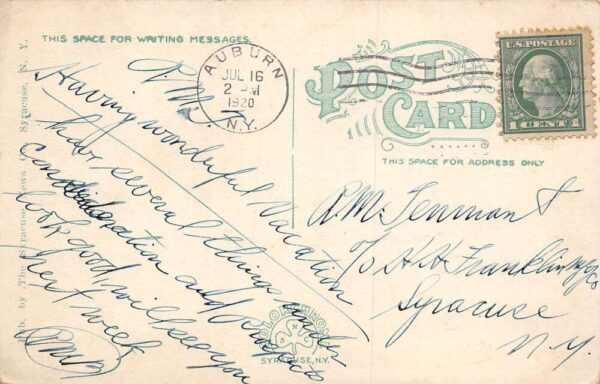 THIS SPACE FOR WRITING MESSAGES
AUBURN
JUL 16
2 PM
1920
N.Y.
POST
CARD
THIS SPACE FOR ADDRESS ONLY
U.S. POSTAGE
1 CENT 1
Pub. by The Syracuse News Co., Syracuse, N. Y.
Having wonderful Vacation
have several things under
consideration and prospects
look good, will see you
next week
R.M. Tennant
c/o H H Franklin Mfg Co
Syracuse
N.Y.
SYRACUSE, N.Y.